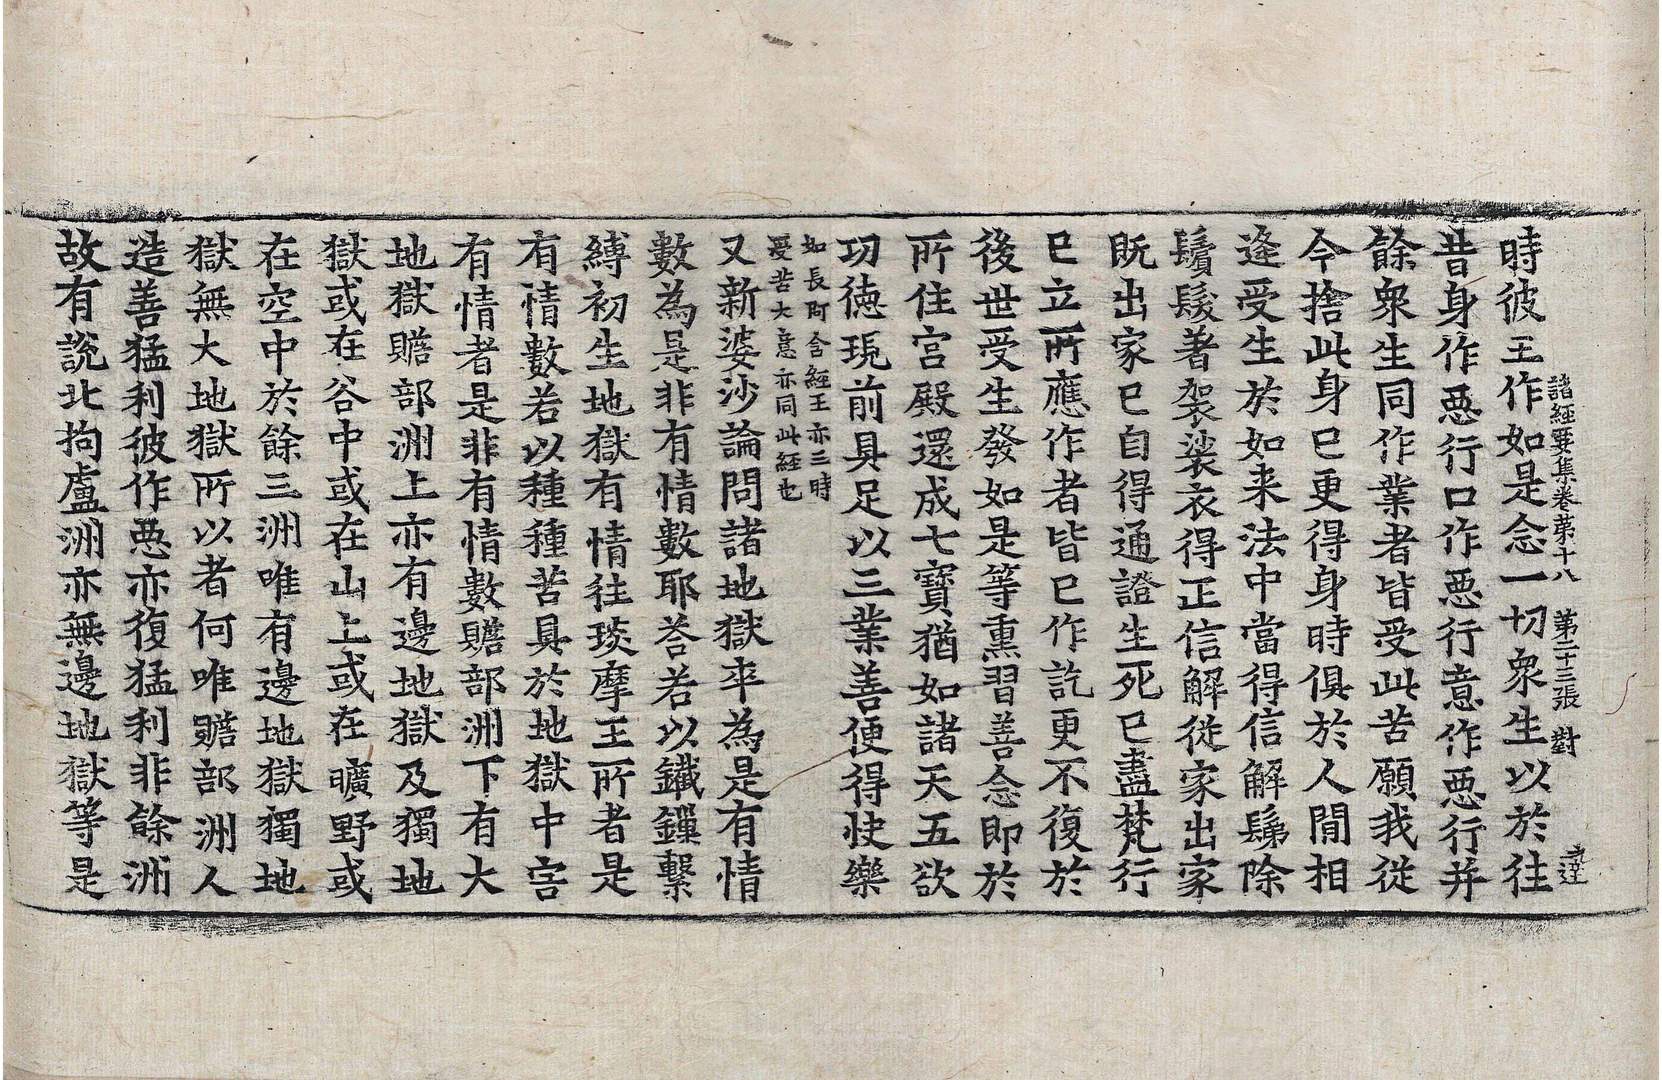 諸経要集卷第十八 第二十三張 對
時彼王作如是念一切衆生以於往
昔身作悪行口作悪行意作悪行并
餘衆生同作業者皆受此苦願我從
今捨此身已更得身時俱於人閒相
逢受生於如来法中當得信解鬀除
鬚髮著袈裟衣得正信解從家出家
既出家已自得通證生死已盡梵行
已立所應作者皆已作訖更不復於
後世受生發如是等熏習善念即於
所住宮殿還成七寶猶如諸天五欲
功徳現前具足以三業善便得快樂
如長阿含經王亦三時
受苦大意亦同此經也
又新婆沙論問諸地獄卒為是有情
數為是非有情數耶荅若以鐵鏁繫
縛初生地獄有情往琰摩王所者是
有情數若以種種苦具於地獄中害
有情者是非有情數贍部洲下有大
地獄贍部洲上亦有邊地獄及獨地
獄或在谷中或在山上或在曠野或
在空中於餘三洲唯有邊地獄獨地
獄無大地獄所以者何唯贍部洲人
造善猛利彼作悪亦復猛利非餘洲
故有說北拘盧洲亦無邊地獄等是